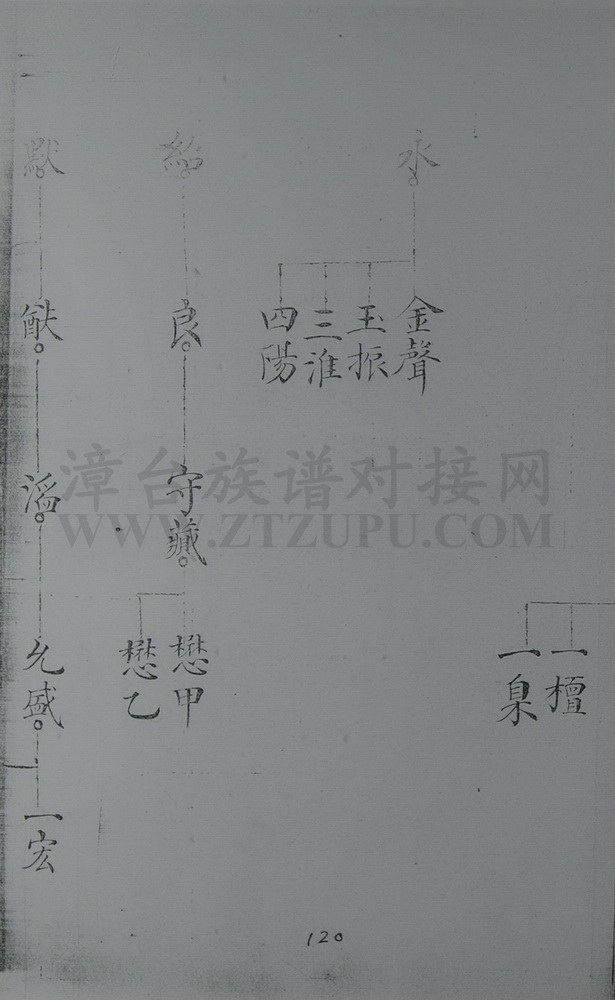 永
金聲
玉振
三淮
四陽
一檀
一臬
良
守藏
懋甲
懋乙
默
允盛
一宏
漳台族谱对接网
WWW.ZTZUPU.COM
120